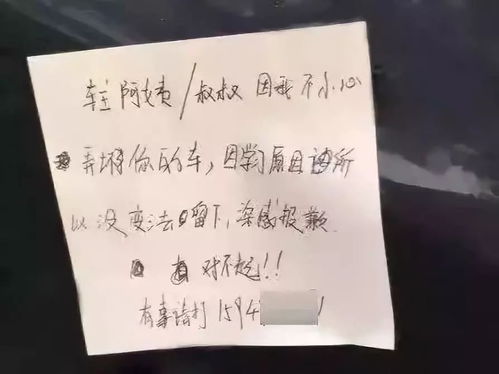 车主阿姨/叔叔 因我不小心
弄坏你的车，因学习原因 所
以没变法留下，深感报歉
对不起！！
有事请打 1594 1